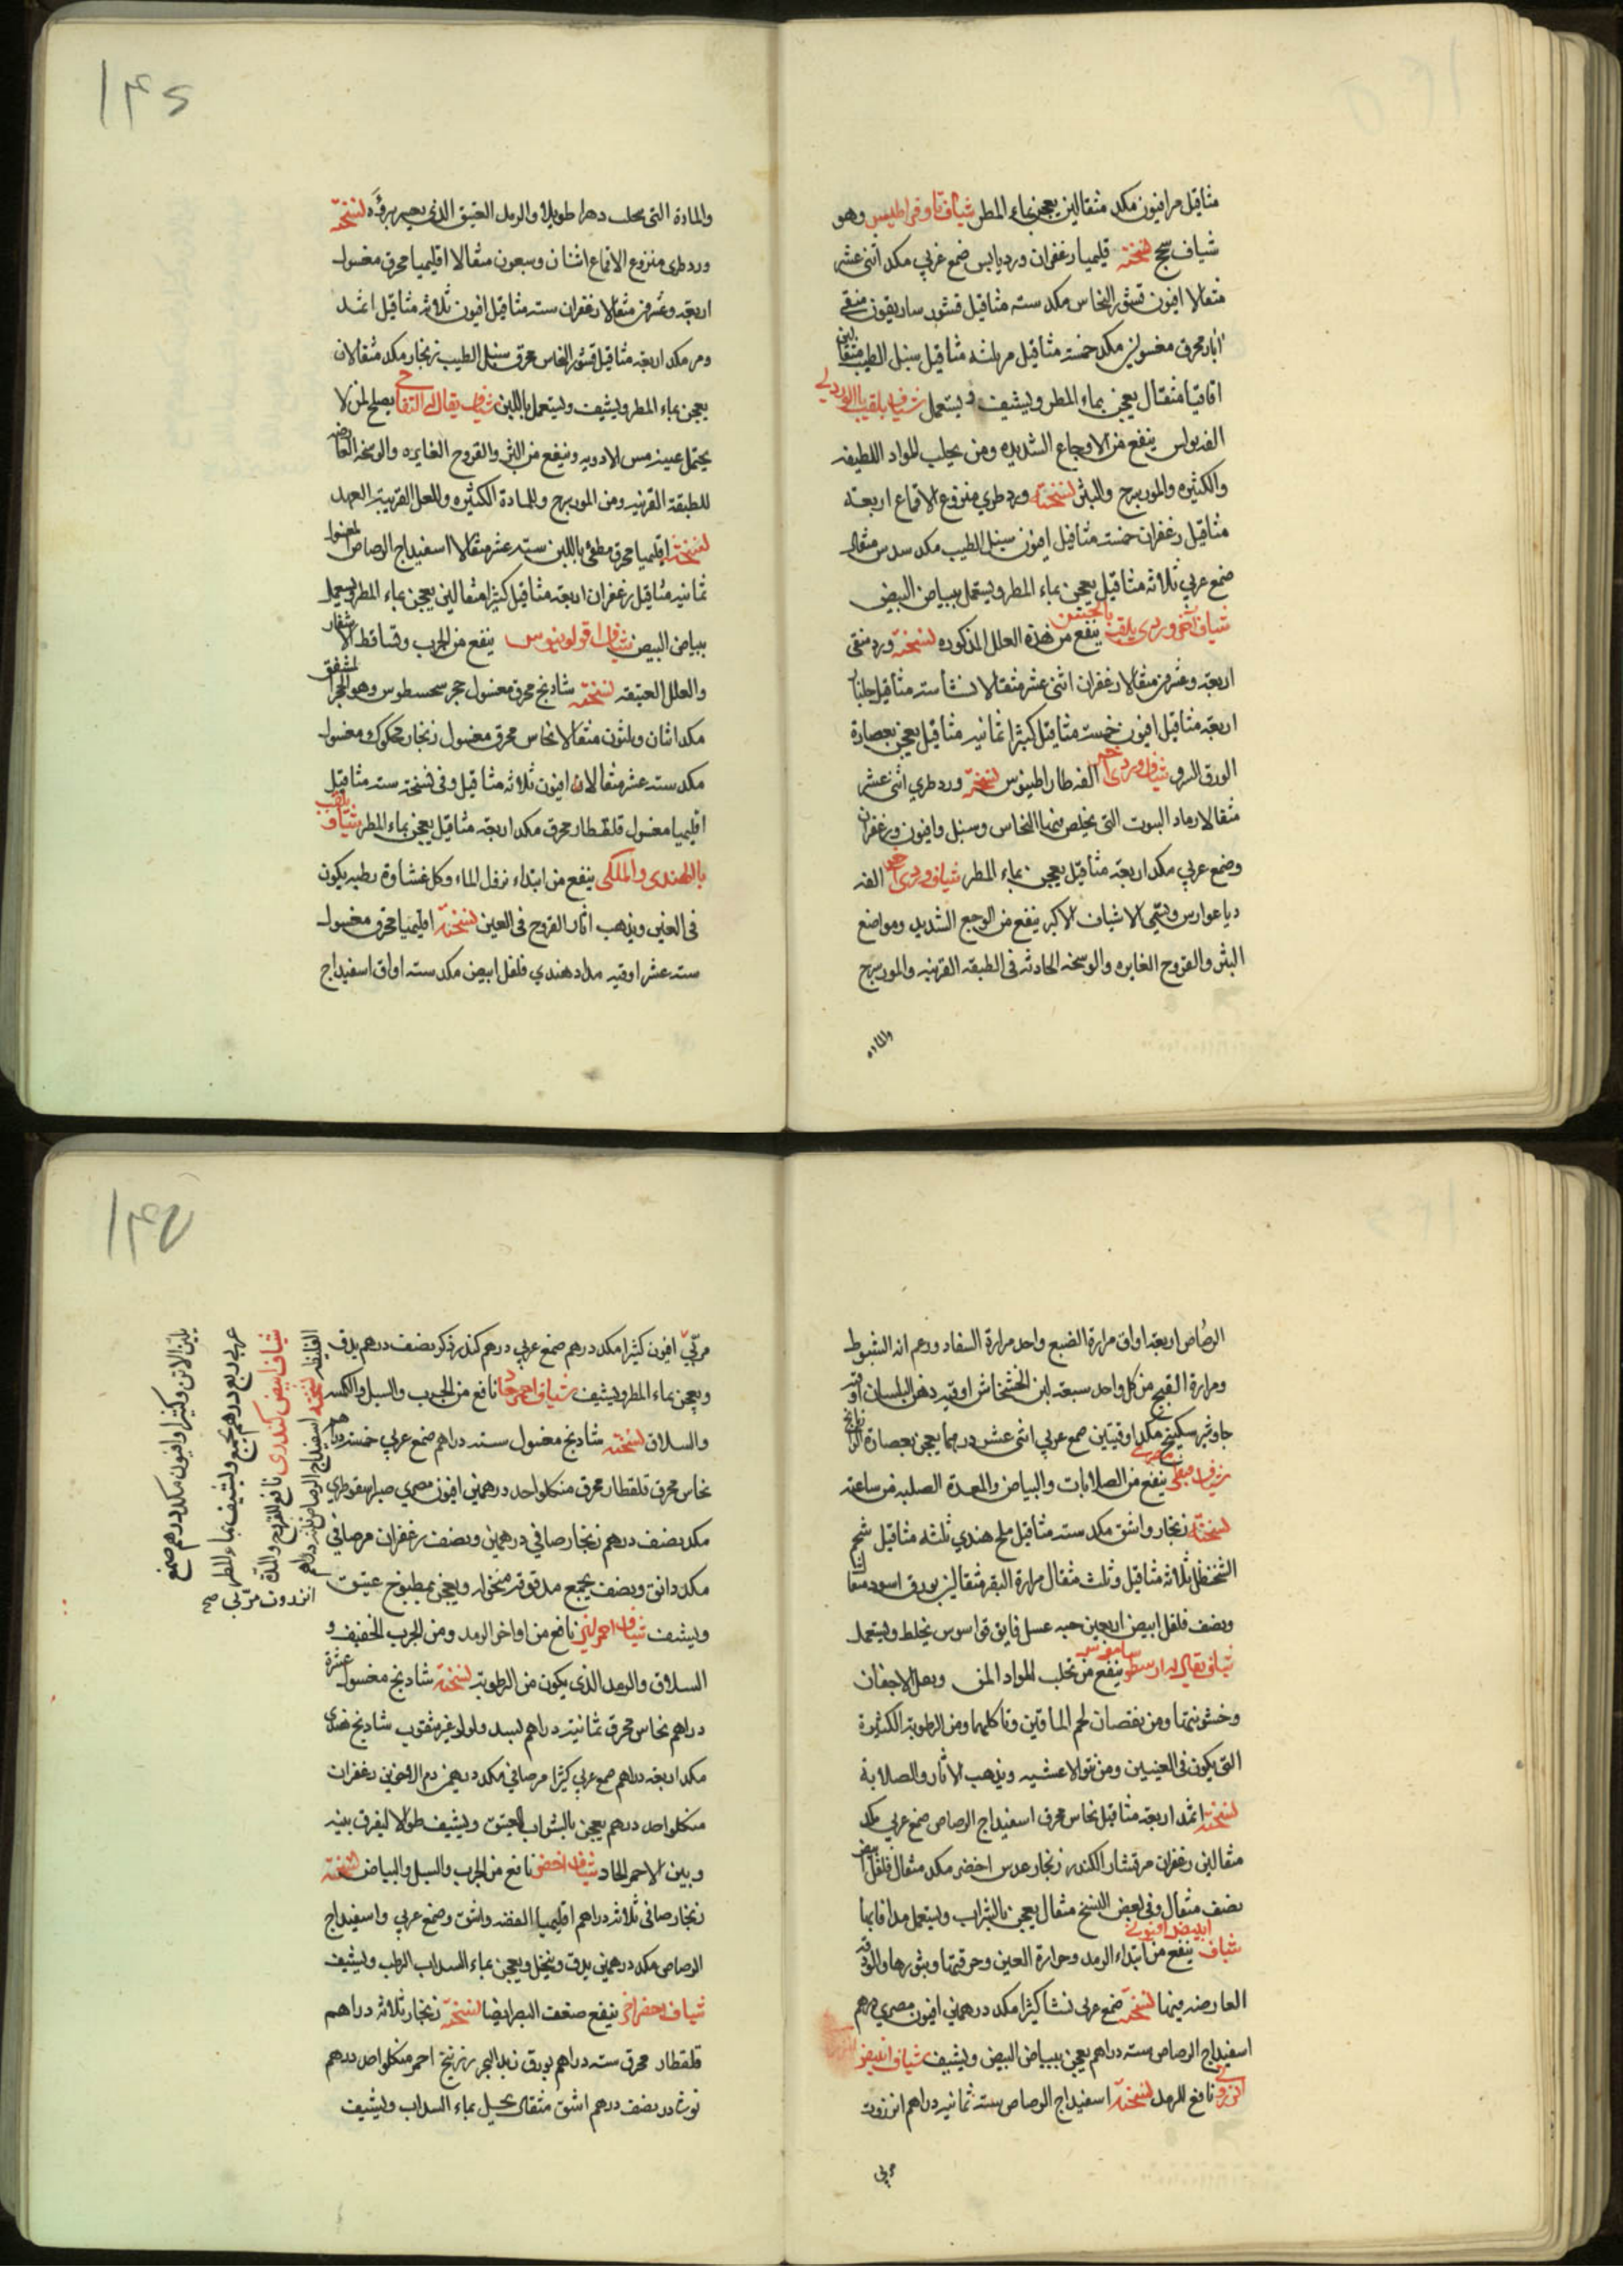 مثاقيل مر افيون مكد مثقالين يعجن بماء المطر شياف ناوفراطيس وهو
شياف سبج نسخته قليميا زعفران ورد يابس صمغ عربي مكد اثنى عشر
مثقالا افيون قشور النحاس مكد سته مثاقيل قشور ساريقون منقى
انار محرق مغسول مكد خمسه مثاقيل مر ثلثه مثاقيل سنبل الطيب مثقالين
اقاقيا مثقال يعجن بماء المطر ويشيف ويستعمل شياف يلقب بالوردي
الفه بولس ينفع من الاوجاع الشديده ومن يحلب المواد اللطيفه
والكثيره والمورسرج والبثر نسخته ورد طري منزوع الاقماع اربعة
مثاقيل زعفران خمسه مثاقيل افيون سنبل الطيب مكد سدس مثقال
صمغ عربي ثلاثه مثاقيل يعجن بماء المطر ويستعمل ببياض البيض
شياف اخر وردي يلقب ينفع من هذه العلل المذكوره نسخته ورد منقى
اربعة وعشرين مثقالا زعفران اثنى عشر مثقالا نشا سته مثاقيل
اربعة مثاقيل افيون خمسة مثاقيل كثيرا ثمانيه مثاقيل يعجن بعصارة
الورق السرو شياف وردي اخر الفه نسخته ورد طري اثنى عشر
مثقالا رماد البيوت التى يخلص فيها النحاس وسنبل وافيون وزعفران
وصمغ عربي مكد اربعة مثاقيل يعجن بماء المطر شياف وردى اخر الفه
دياعوارس ويسمى الاشياف الاكبر ينفع من الوجع الشديد ومواضع
البثر والقروح الغايره والوسخه الحادثه فى الطبقه القرنيه والمورسرج
والماده
١٣٤
والمادة التى يحلب دهرا طويلا والرمد العتيق الذى يعسر برؤه نسخته
ورد طرى منزوع الاقماع اثنان وسبعون مثقالا اقليميا محرق مغسول
اربعة وعشرين مثقالا زعفران سته مثاقيل افيون ثلاثه مثاقيل اثمد
ومر مكد اربعه مثاقيل قشور النحاس محرق سنبل الطيب زنجار مكد مثقالان
يعجن بماء المطر ويشيف ويستعمل باللبن شياف يقال له التفاحي يصلح لمن لا
يحتمل عينه مس الادويه وينفع من البثر والقروح الغايره والوسخه العارضه
للطبقة القرنيه ومن المورسرج وللمادة الكثيره وللعلل القريبة العهد
نسخته اقليميا محرق مطفى باللبن سته عشر مثقالا اسفيداج الرصاص المغسول
ثمانيه مثاقيل زعفران اربعه مثاقيل كثيرا مثقالين يعجن بماء المطر ويستعمل
ببياض البيض شياف اقولوينوس ينفع من الجرب وتساقط الاشفار
والعلل العتيقه نسخته شادنج محرق مغسول حجر سحسطوس وهو الحجر المشقق
مكد اثنان وثلثون مثقالا نحاس محرق مغسول زنجار محكوك ومغسول
مكد سته عشر مثقالا افيون ثلاثه مثاقيل وفى نسخة سته مثاقيل
اقليميا مغسول قلقطار محرق مكد اربعة مثاقيل يعجن بماء المطر شياف يلقب
بالهندى والملكى ينفع من ابتداء نزول الماء وكل غشاوة رطبه يكون
فى العين ويذهب اثار القروح فى العين نسخته اقليميا محرق مغسول
سته عشر اوقيه مداد هندي فلفل ابيض مكد سته اواق اسفيداج
الرصاص اربعة اواق مرارة الضبع واحد مرارة السفاد وزعم انه الشبوط
ومرارة القبج من كل واحد سبعه لبن الخشخاش اوقيه دهن البلسان اوقيه
جاوشير سكبينج مكد اوقيتين صمغ عربي اثنى عشر درهما يعجن بعصارة الرازيانج
ينفع من الصلابات والبياض والمعدة الصلبه من ساعته
نسخته زنجار واشق مكد سته مثاقيل ملح هندي ثلثه مثاقيل شحم
الحنظل ثلاثه مثاقيل وثلث مثقال مرارة البقر مثقالين بورق اسود مثقالا
ونصف فلفل ابيض اربعين حبه عسل فايق يخلط ويستعمل
شياف يقال له ارسطو ينفع من تحلب المواد وبعلل الاجفان
وخشونتها ومن نقصان لحم الماقين وتاكلهما ومن الرطوبة الكثيرة
التى يكون فى العينين ومن نتو الاعشيه ويذهب الاثار والصلابة
نسخته اثمد اربعة مثاقيل نحاس محرق اسفيداج الرصاص صمغ عربي مكد
مثقالين زعفران مر قشار الكندر زنجار عدس اخضر مكد مثقال فلفل ابيض
نصف مثقال وفى بعض النسخ مثقال يعجن بالشراب ويستعمل
شياف ابيض افيونى ينفع من ابتداء الرمد وحرارة العين وحرقتها وبثورها والوقة
العارضه فيها نسخته صمغ عربى نشا كثيرا مكد درهمين افيون مصرى درهم
اسفيداج الرصاص سته دراهم يعجن ببياض البيض ويشيف شياف ابيض
انزروتى نافع للرمد نسخته اسفيداج الرصاص سته ثمانيه دراهم انزروت
مربى
١٣٥
مربى افيون كثيرا مكد درهم صمغ عربي درهم كندر ذكر نصف درهم يدق
ويعجن بماء المطر ويشيف شياف احمر حاد نافع من الجرب والسبل
والسلاق نسخته شادنج مغسول سته دراهم صمغ عربي خمسة دراهم
نحاس محرق قلقطار محرق من كل واحد درهمين افيون مصري صبر سقوطري
مكد نصف درهم زنجار صافي درهمين ونصف زعفران مر صافي
مكد دانق ونصف يجمع مدقوقه منخوله ويعجن بمطبوخ عتيق
ويشيف شياف احمر لين نافع من اواخر الرمد ومن الجرب الخفيف و
السلاق والرمد الذى يكون من الرطوبة نسخته شادنج مغسول عشرة
دراهم نحاس محرق ثمانيه دراهم بسد ولولو غير مثقوب شادنج هندى
مكد اربعة دراهم صمغ عربي كثيرا مر صافي مكد درهمين دم الاخوين زعفران
من كل واحد درهم يعجن بالشراب العتيق ويشيف طوالا ليفرق بينه
وبين الاحمر الحاد شياف اخضر نافع من الجرب والسبل والبياض نسخته
زنجار صافى ثلاثه دراهم اقليميا الفضه واشق وصمغ عربي واسفيداج
الرصاص مكد درهمين يدق وينخل ويعجن بماء السداب الرطب ويشيف
شياف اخضر اخر ينفع ضعف البصر ايضا نسخته زنجار ثلاثه دراهم
قلقطار محرق سته دراهم بورق زبد البحر زرنيخ احمر من كل واحد درهم
نوشادر نصف درهم اشق مثقال يحل بماء السداب ويشيف
شياف ابيض كندرى نافع للقروح والمدة
الغليظه نسخته اسفيداج الرصاص ثمانيه دراهم
انزروت مربى
بلبن الاتن وكثيرا وافيون مكد درهم صمغ
عربى اربع دراهم يجمع ويشيف بماء المطر